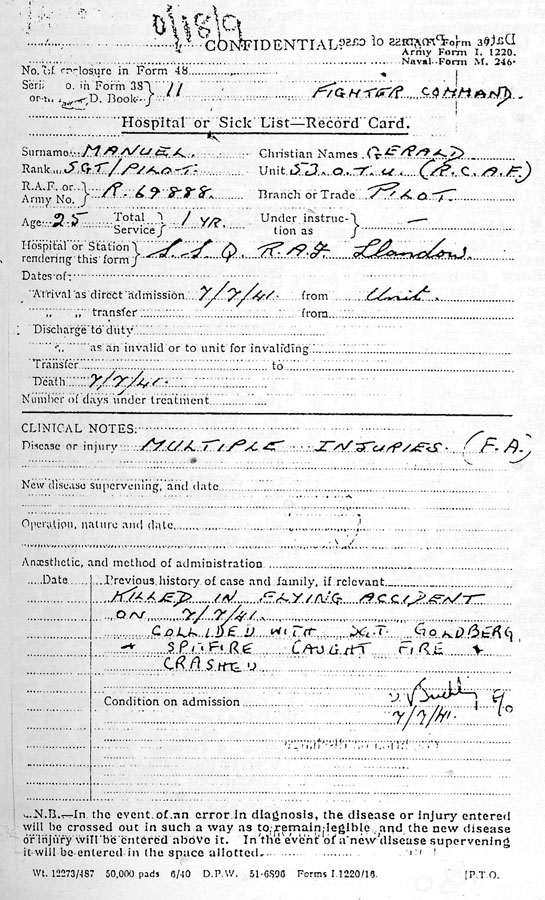 0/18/9
CONFIDENTIAL.
R.A.F. Form 39
Army Form I. 1220.
Naval Form M. 246.
No. of enclosure in Form 48
Serial No. in Form 38
or in A. & D. Book 11 FIGHTER COMMAND.
Hospital or Sick List—Record Card.
Surname MANUEL. Christian Names GERALD
Rank SGT/PILOT. Unit 53.O.T.U. (R.C.A.F.)
R.A.F. or Army No. R.69888. Branch or Trade PILOT.
Age 25 Total Service 1 YR. Under instruction as —
Hospital or Station rendering this form S.S.Q. R.A.F. Llandow.
Dates of:
Arrival as direct admission 7/7/41. from Unit.
" " transfer from
Discharge to duty
" as an invalid or to unit for invaliding
Transfer to
Death 7/7/41.
Number of days under treatment
CLINICAL NOTES:
Disease or injury MULTIPLE INJURIES. (F.A.)
New disease supervening, and date
Operation, nature and date
Anæsthetic, and method of administration
Date Previous history of case and family, if relevant
KILLED IN FLYING ACCIDENT
ON 7/7/41.
COLLIDED WITH SGT GOLDBERG
+ SPITFIRE CAUGHT FIRE +
CRASHED
Condition on admission
7/7/41.
N.B.—In the event of an error in diagnosis, the disease or injury entered
will be crossed out in such a way as to remain legible and the new disease
or injury will be entered above it. In the event of a new disease supervening
it will be entered in the space allotted.
Wt. 12273/487 50,000 pads 6/40 D.P.W. 51-6896 Forms I.1220/16. [P.T.O.